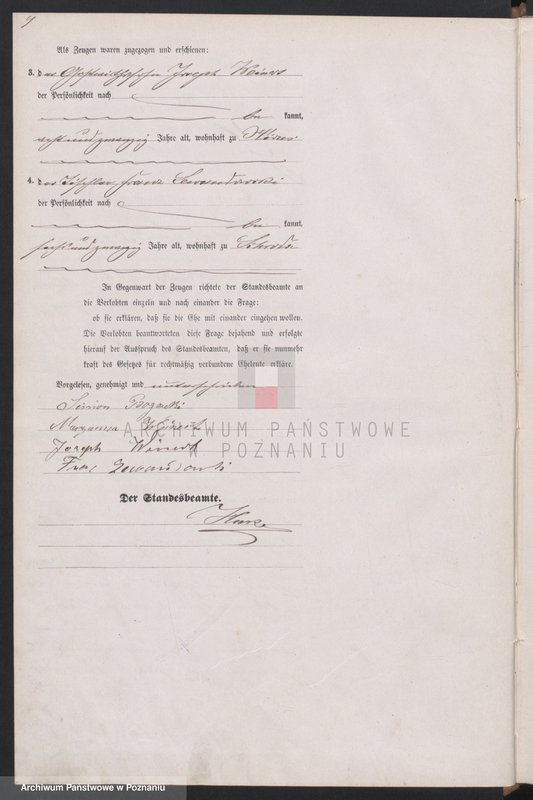 Als Zeugen waren zugezogen und erschienen:
3. der Joseph
der Persönlichkeit nach
be kannt,
acht und zwanzig Jahre alt, wohnhaft zu
4. der Tischler Franz
der Persönlichkeit nach
be kannt,
sechs und zwanzig Jahre alt, wohnhaft zu Schroda
In Gegenwart der Zeugen richtete der Standesbeamte an
die Verlobten einzeln und nach einander die Frage:
ob sie erklären, daß sie die Ehe mit einander eingehen wollen.
Die Verlobten beantworteten diese Frage bejahend und erfolgte
hierauf der Ausspruch des Standesbeamten, daß er sie nunmehr
kraft des Gesetzes für rechtmäßig verbundene Eheleute erkläre.
Vorgelesen, genehmigt und unterschrieben
Joseph
Der Standesbeamte.
ARCHIWUM PAŃSTWOWE
W POZNANIU
Archiwum Państwowe w Poznaniu